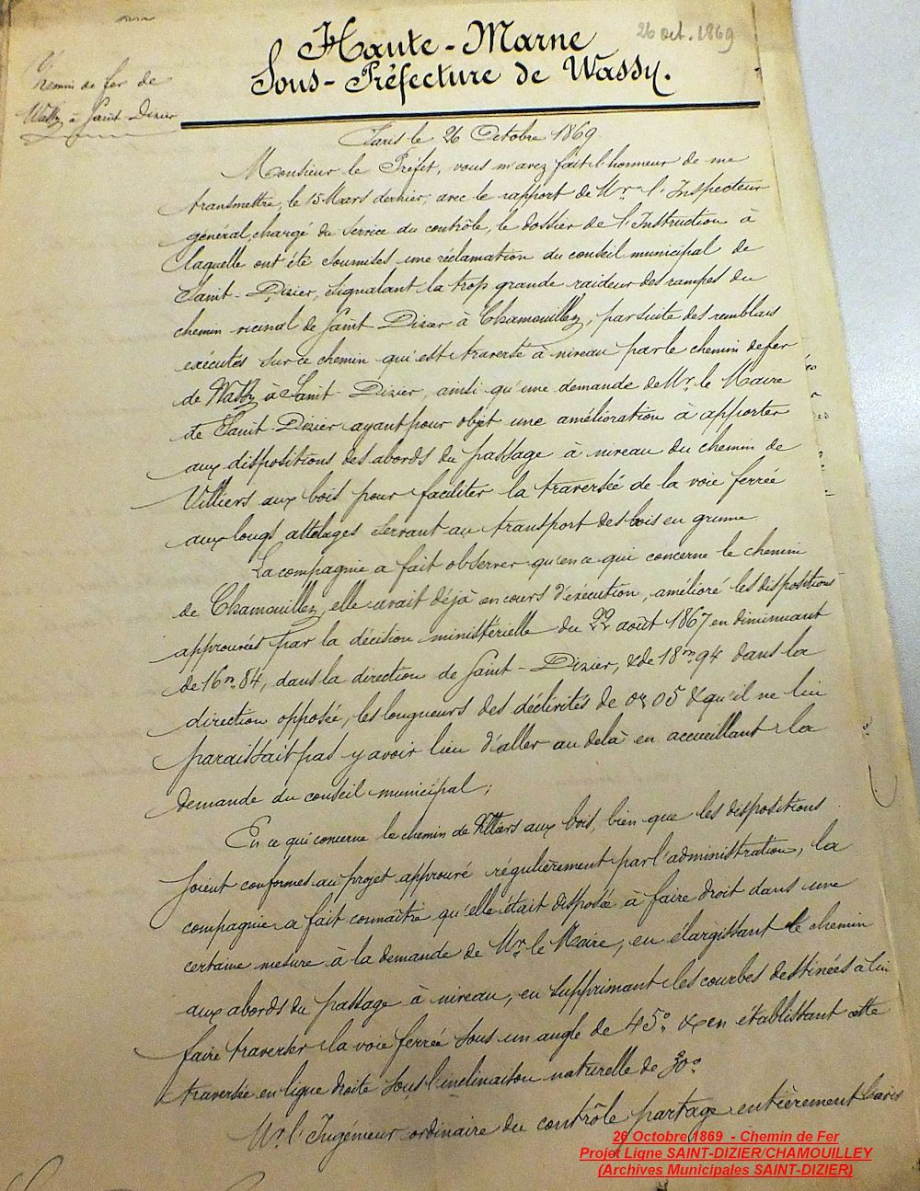 26 oct. 1869
Haute-Marne
Sous-Préfecture de Wassy.
Chemin de fer de
Wassy à Saint-Dizier
Paris le 26 Octobre 1869.
Monsieur le Préfet, vous m'avez fait l'honneur de me
transmettre, le 15 Mars dernier, avec le rapport de Mr. l'Inspecteur
général, chargé du service du contrôle, le dossier de l'Instruction à
laquelle ont été soumises une réclamation du conseil municipal de
Saint-Dizier, signalant la trop grande raideur des rampes du
chemin vicinal de Saint Dizier à Chamouilley, par suite des remblais
exécutés sur ce chemin qui est traversé à niveau par le chemin de fer
de Wassy à Saint-Dizier, ainsi qu'une demande de Mr. le Maire
de Saint-Dizier ayant pour objet une amélioration à apporter
aux dispositions des abords du passage à niveau du chemin de
Villiers aux bois pour faciliter la traversée de la voie ferrée
aux longs attelages servant au transport des bois en grume
La compagnie a fait observer qu'en ce qui concerne le chemin
de Chamouilley, elle avait déjà en cours d'exécution, amélioré les dispositions
approuvées par la décision ministérielle du 22 août 1867 en diminuant
de 16m.84, dans la direction de Saint-Dizier, & de 18m94 dans la
direction opposée, les longueurs des déclivités de 0m05 & qu'il ne lui
paraissait pas y avoir lieu d'aller au delà en accueillant la
demande du conseil municipal;
En ce qui concerne le chemin de Villiers aux bois, bien que les dispositions
soient conformes au projet approuvé régulièrement par l'administration, la
compagnie a fait connaître qu'elle était disposée à faire droit dans une
certaine mesure à la demande de Mr. le Maire, en élargissant le chemin
aux abords du passage à niveau, en supprimant les courbes destinées à lui
faire traverser la voie ferrée sous un angle de 45° & en établissant cette
traversée en ligne droite sous l'inclinaison naturelle de 30°
Mr. l'Ingénieur ordinaire du contrôle partage entièrement l'avis
26 Octobre 1869 - Chemin de Fer
Projet Ligne SAINT-DIZIER/CHAMOUILLEY
(Archives Municipales SAINT-DIZIER)